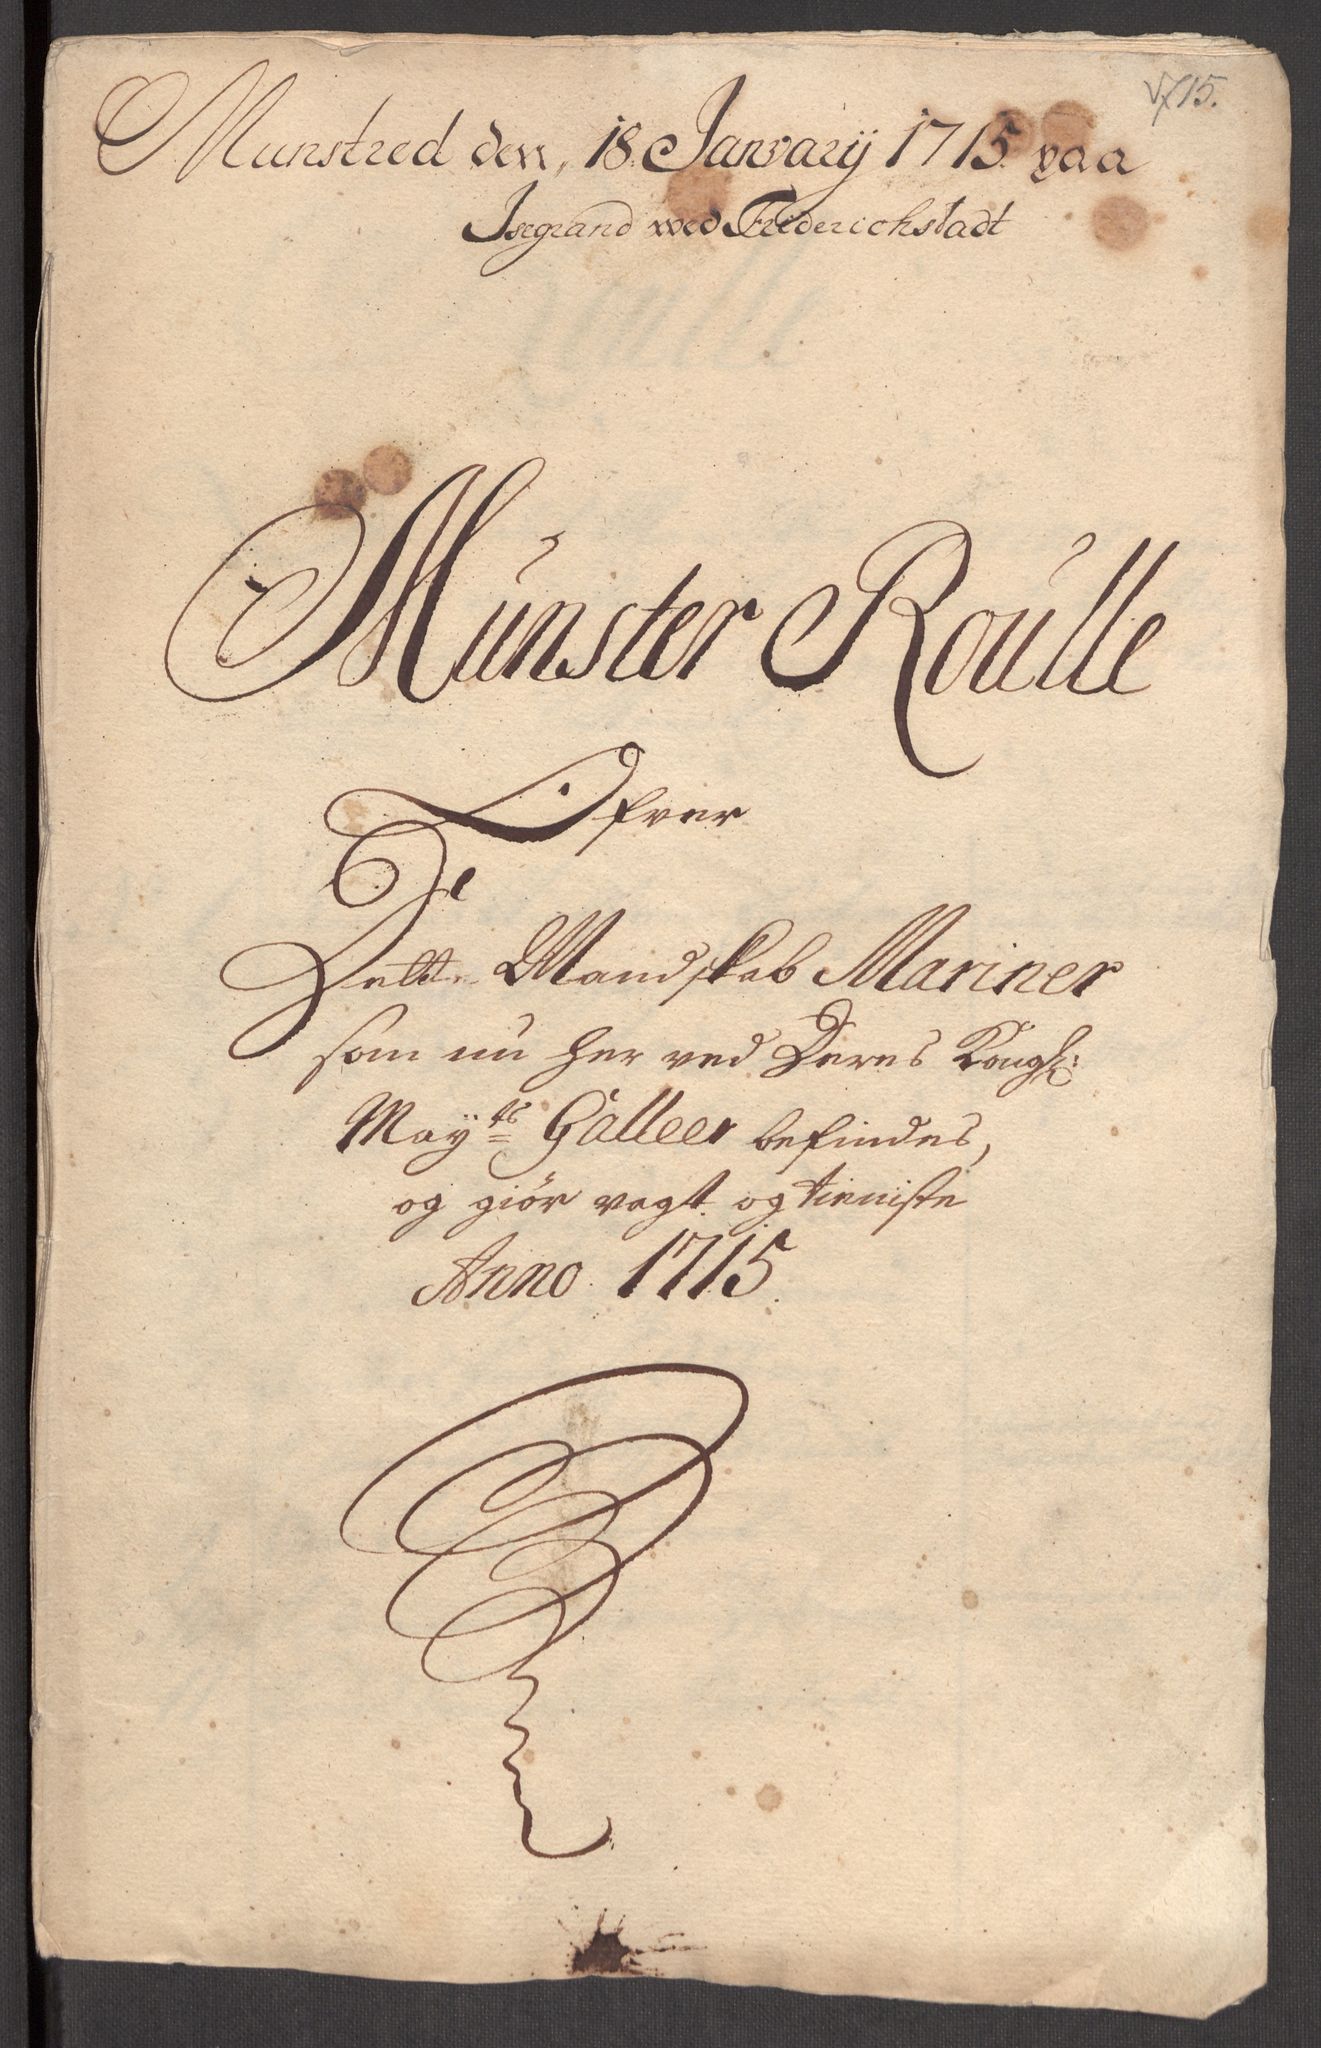 1715.
Munstred den, 18. Januarij 1715. paa
Isegrand wed Friderichstadt
Munster Roulle
Ofver
Dette Mandskab Mariner
som nu her ved Deres Kongl:
Mayts Galleer befindes,
og giør vagt og tieniste
Anno 1715.